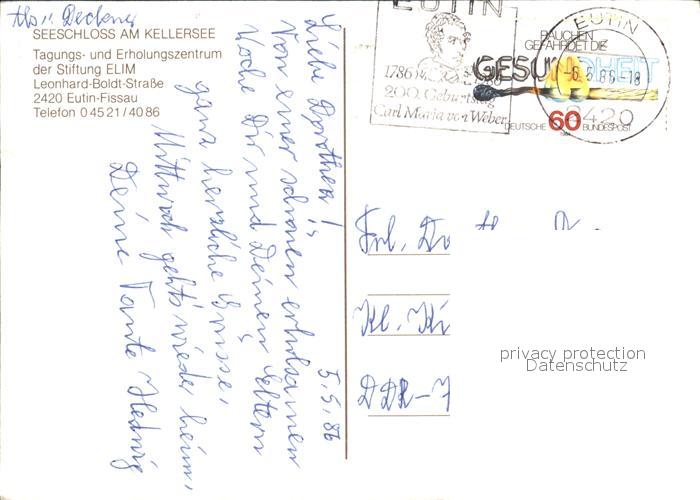 SEESCHLOSS AM KELLERSEE
Tagungs- und Erholungszentrum
der Stiftung ELIM
Leonhard-Boldt-Straße
2420 Eutin-Fissau
Telefon 0 45 21 / 40 86
EUTIN
1786 1986
200. Geburtstag
Carl Maria von Weber
RAUCHEN
GEFÄHRDET DIE
GESUNDHEIT
DEUTSCHE 60 BUNDESPOST
EUTIN
-6.5.86-18
2420
5.5.86
Liebe Dorothea!
Von einer schönen erholsamen
Woche Dir und Deinen Eltern
ganz herzliche Grüsse,
Mittwoch geht's wieder heim,
Deine Tante Hedwig
Frl. Do
Kl. Ki
DDR-7
privacy protection
Datenschutz